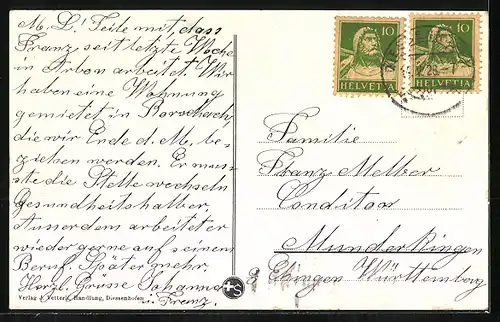 M. L! Teile mit, dass
Franz seit letzte Woche
in Arbon arbeitet. Wir
haben eine Wohnung
gemietet in Rorschach,
die wir Ende d. M. be-
ziehen werden. Er muss-
te die Stelle wechseln
gesundheitshalber,
Ausserdem arbeitet er
wieder gerne auf seinem
Beruf. Später mehr.
Herzl. Grüsse Johanna
u. Franz.
Verlag J. Vetter, Handlung, Diessenhofen
10 10
HELVETIA HELVETIA
Familie
Franz Melber
Conditor
Munderkingen
Ehingen Württemberg